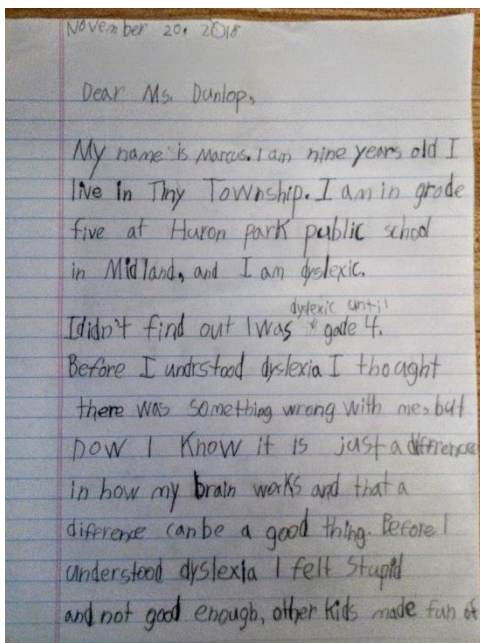 November 20, 2018
Dear Ms. Dunlop,
My name is Marcus. I am nine years old I
live in Tiny Township. I am in grade
five at Huron park public school
in Midland, and I am dyslexic.
dyslexic until
I didn't find out I was * gade 4.
Before I undrstood dyslexia I thought
there was something wrong with me, but
now I know it is just a diffrence
in how my brain works and that a
difference can be a good thing. Before I
understood dyslexia I felt stupid
and not good enough, other kids made fun of